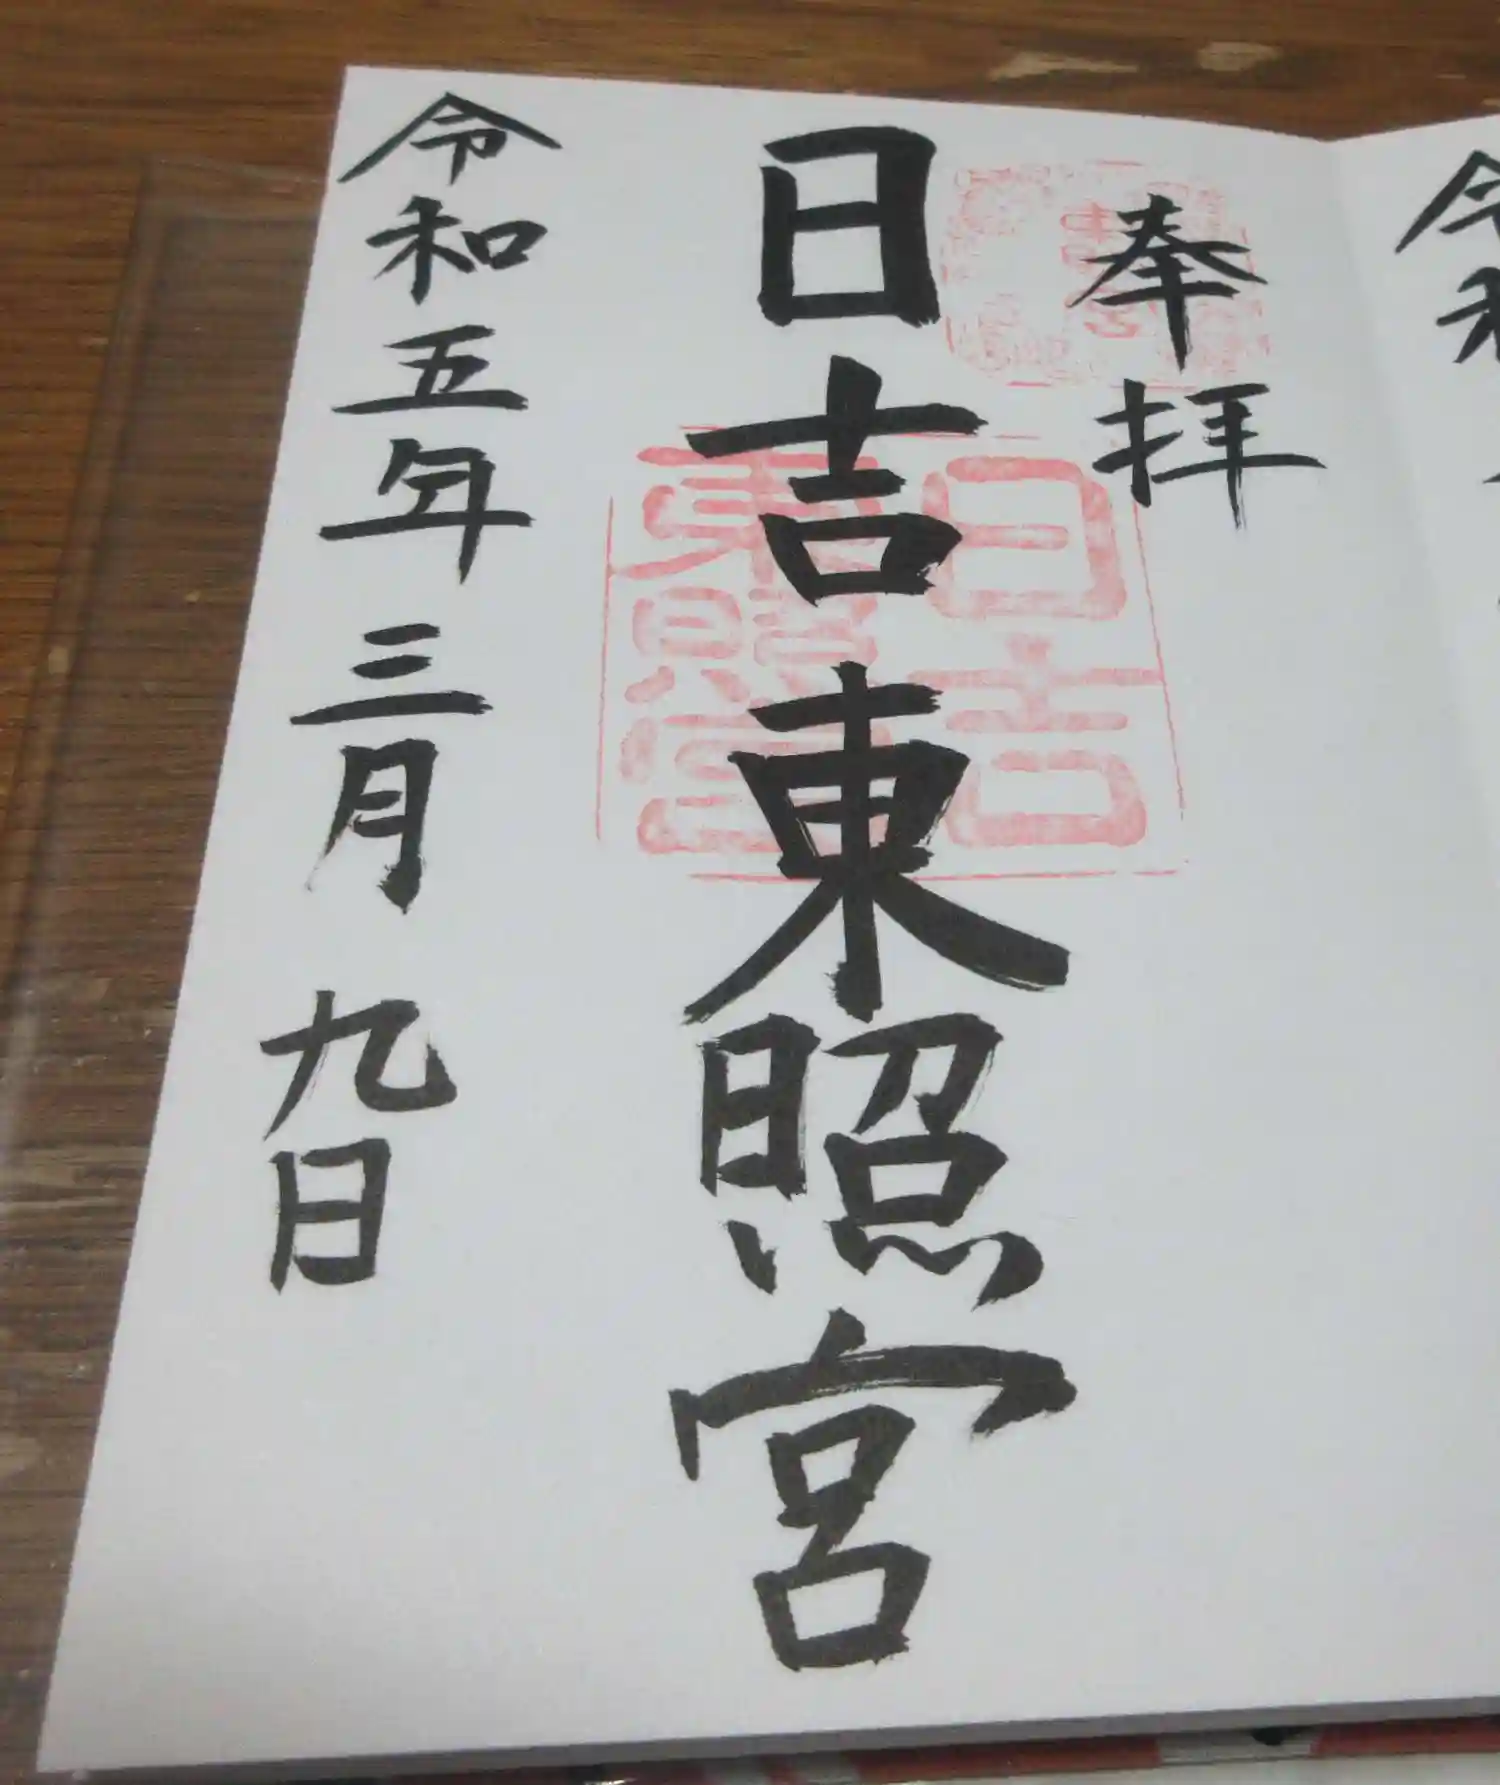 奉拝
日吉東照宮
日吉
東照宮
令和五年三月九日
令和